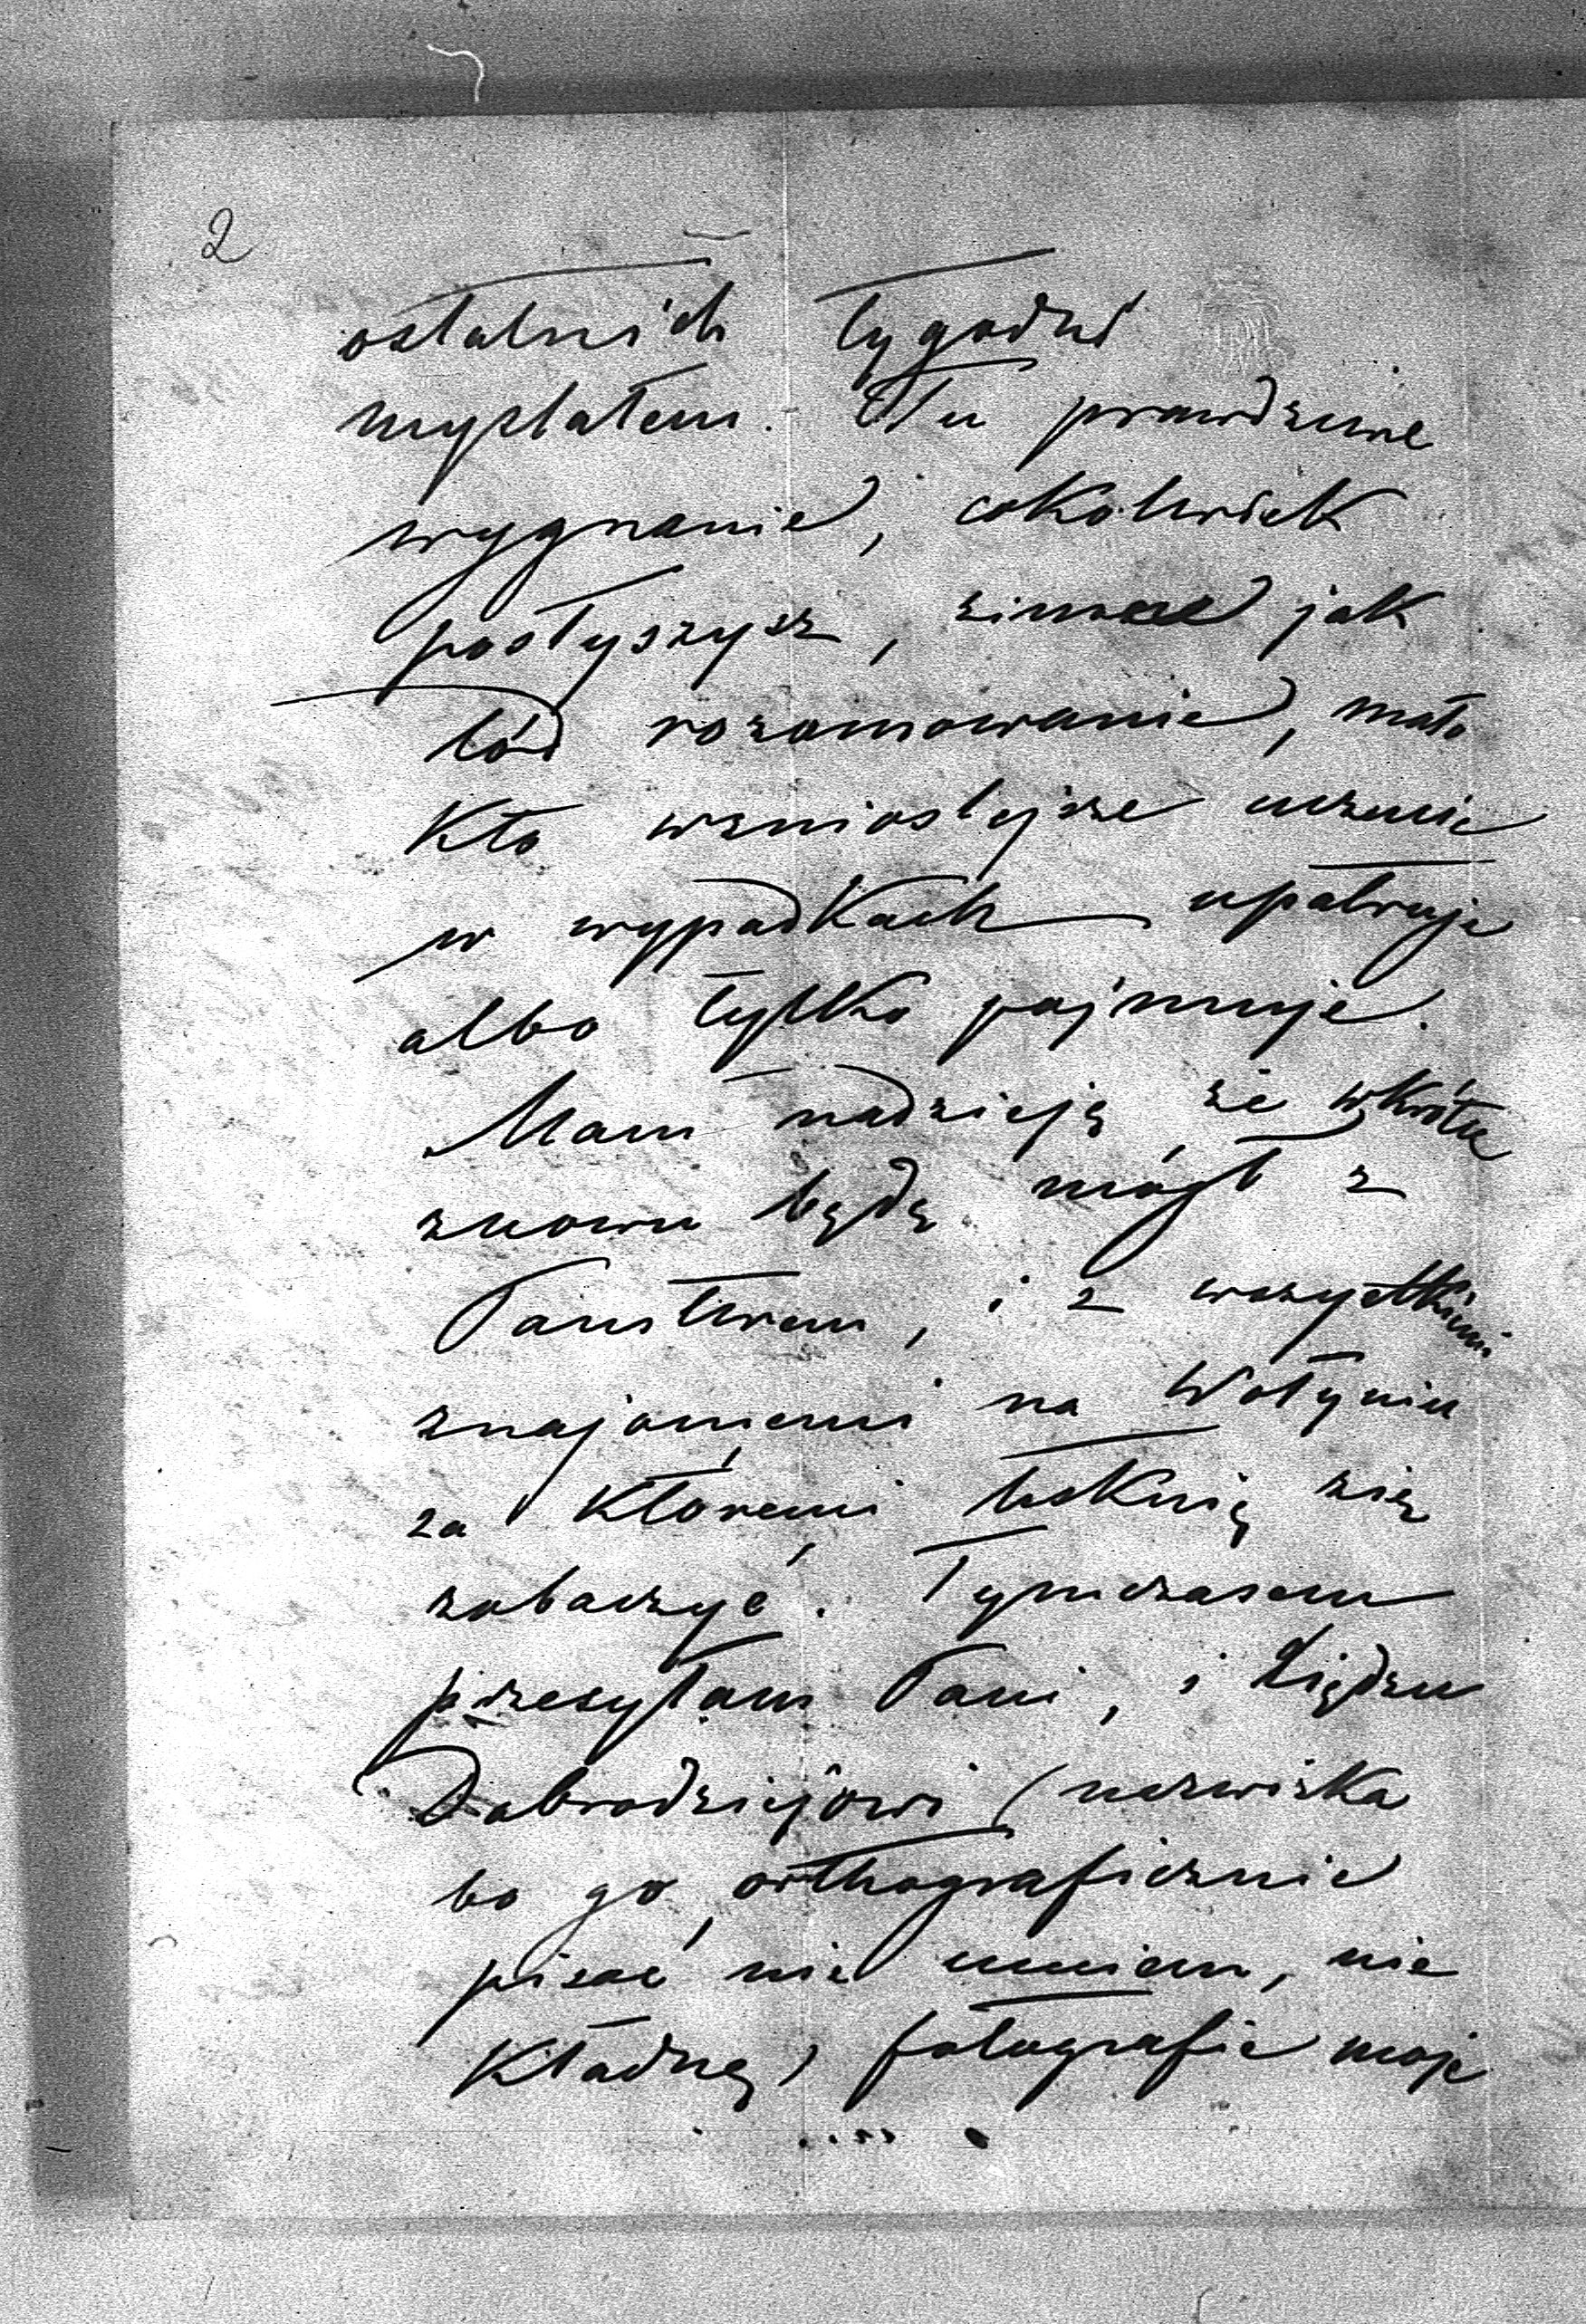 2
ostatnich tygodni
myslałem. Tu prawdziwe
wygnanie, cokolwiek
posłyszysz, zimne jak
lód rozumowanie, mało
kto wznioslejsze uczucie
w wypadkach upatruje
albo tylko pojmuje.
Mam nadzieję, że wkrótce
znowu będę mógł z
Państwem, i z wszystkiemi
znajomemi na Wołyniu
za któremi tesknię się
zobaczyć. Tymczasem
przesyłam Pani, i Księdzu
Dobrodziejowi (nazwiska
bo go orthograficznie
pisać nie umiem, nie
kładnę) fotografie moje